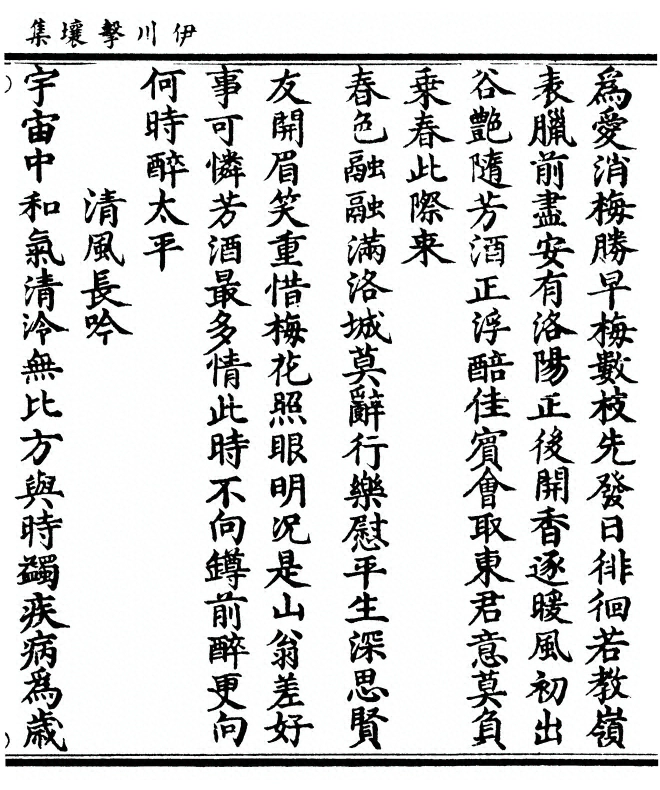 伊川擊壤集
為愛消梅勝早梅數枝先發日徘徊若教嶺
表臘前盡安有洛陽正後開香逐暖風初出
谷艷隨芳酒正浮醅佳賓會取東君意莫負
乘春此際来
春色融融滿洛城莫辭行樂慰平生深思賢
友開眉笑重惜梅花照眼明况是山翁差好
事可憐芳酒最多情此時不向罇前醉更向
何時醉太平
清風長吟
宇宙中和氣清泠無比方與時蠲疾病為歳